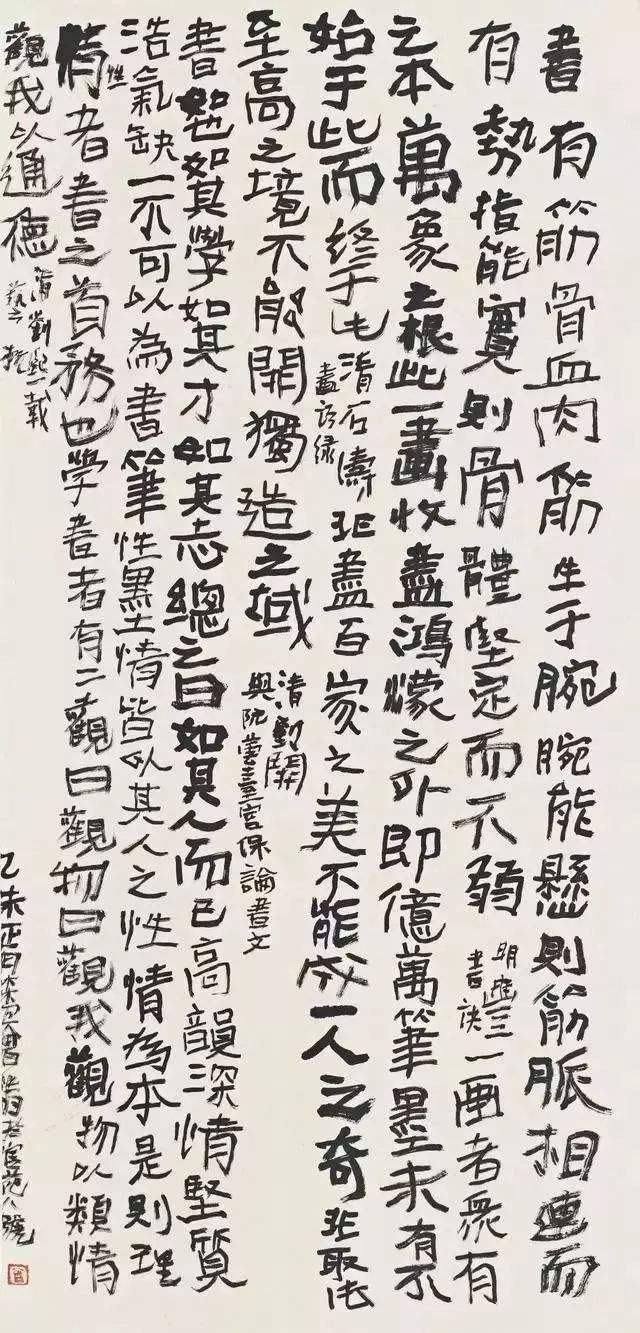 書有筋骨血肉筋生于腕腕能懸則筋脈相連而
有勢指能實則骨體堅定而不弱 明 書訣 一画者衆有
之本萬象之根此一畫收盡鴻濛之外即億萬筆墨未有不
始于此而終于此 清石濤 畫語録 非盡百家之美不能成一人之奇非取法
至高之境不能開獨造之域 清劉開 與阮芸臺宮保論書文
書如也如其學如其才如其志總之曰如其人而已高韻深情堅質
浩氣缺一不可以為書筆性墨情皆以其人之性情為本是則理
性情者書之首務也学書者有二觀曰觀物曰觀我觀物以類情
觀我以通德 清劉熙載 藝概
乙未正月